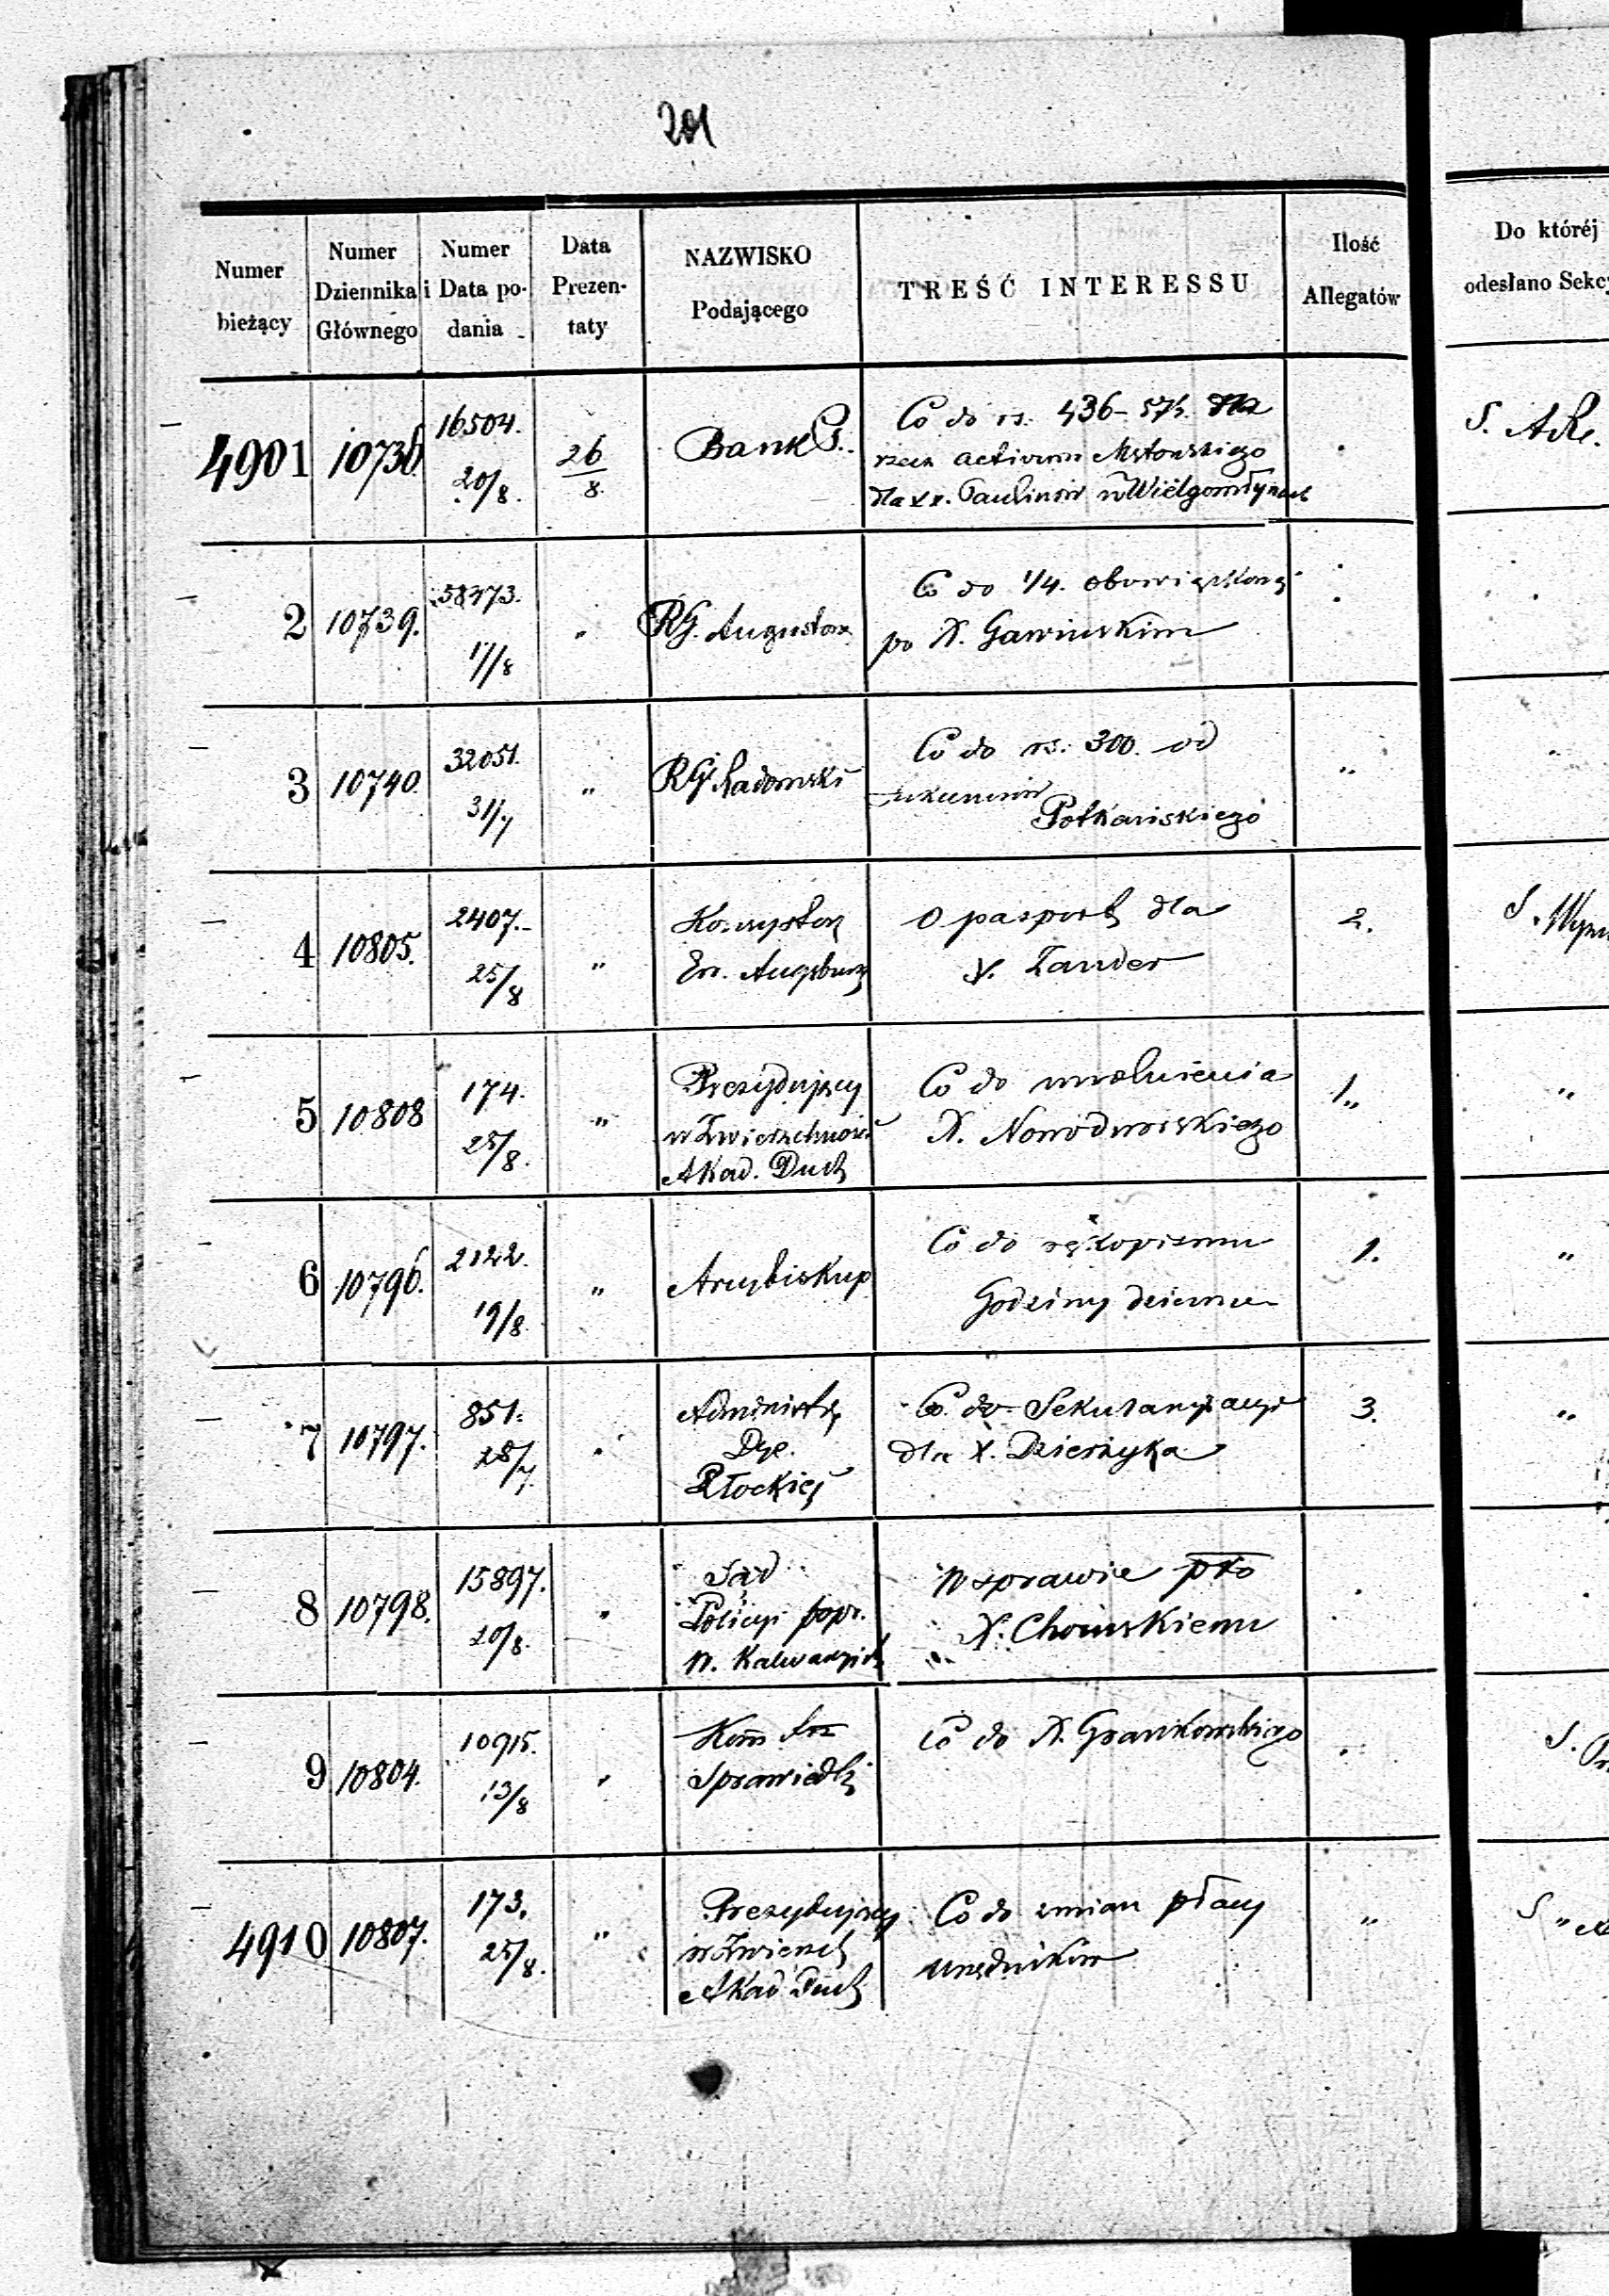 201
Numer bieżący
Numer Dziennika Głównego
Numer i Data podania
Data Prezentaty
NAZWISKO Podającego
TREŚĆ INTERESSU
Ilość Allegatów
Do któréj odesłano Sekcy
4901 10738 16504. 20/8. 26/8. Bank P.
Co do rs. 436-57½ dla
rzecz activum Mstowskiego
dla XX. Paulinów w Wielgomłynach
S.
2 10739. 58373. 17/8 „ RG. Augustow
Co do 1/4. obowiązkowéj
po X. Gawińskim
3 10740. 32051. 31/7 „ RG. Radomski
Co do rs. 300. od
Potkańskiego
„
4 10805. 2407. 25/8 „ Konsystorz
Ew. Augsburg
O paszport dla
Zander
2.
S. Wyzn
5 10808 174. 25/8. „ Prezydujący
w Zwierzchności
Akad. Duch
Co do uwolnienia
X. Nowodworskiego
1„
„
6 10796. 2122. 19/8. „ Arcybiskup
Co do rękopismu
Godziny dzienne
1.
„
7 10797. 851. 28/7. „ Administr.
Dye.
Płockiéj
Co do Sekularyzacyi
dla X. Dzierzyka
3.
„
8 10798. 15897. 20/8. „ Sąd
Policyi popr.
w Kalwaryi
W sprawie pko
X. Choińskiemu
9 10804. 10915. 13/8 „ Kom Rz
Sprawiedli
Co do X. Grankowskiego
S.
4910 10807. 173. 25/8. „ Prezydujący
w Zwierzch
Akad Duch
Co do zmian płacy
urzędników
„
S „